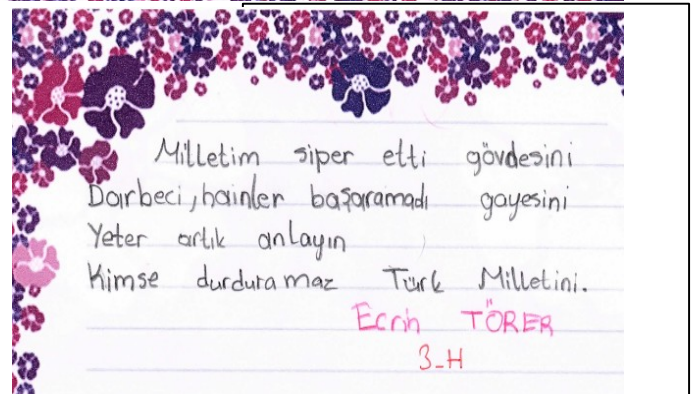 Milletim siper etti gövdesini
Darbeci, hainler başaramadı gayesini
Yeter artık anlayın
Kimse durduramaz Türk Milletini.
Ecrin TÖRER
3-H